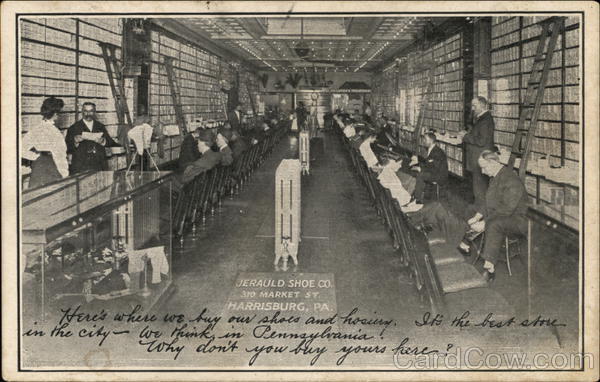 JERAULD SHOE CO.
310 MARKET ST.
HARRISBURG, PA.
Here's where we buy our shoes and hosiery. It's the best store
in the city — We think, in Pennsylvania!
Why don't you buy yours here?
CardCow.com